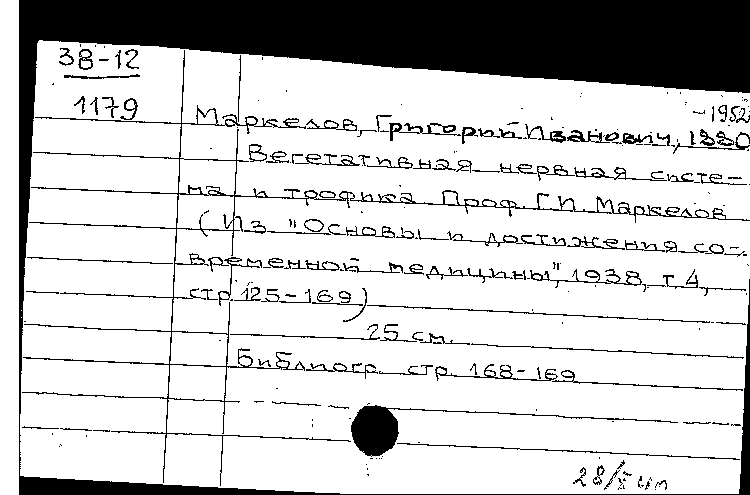 38-12
1179
-1952
Маркелов, Григорий Иванович, 1880
Вегетативная нервная систе-
ма и трофика Проф. Г.И. Маркелов
(Из "Основы и достижения со-
временной медицины", 1938, т. 4,
стр 125-169)
25 см.
Библиогр. стр. 168-169
28/X